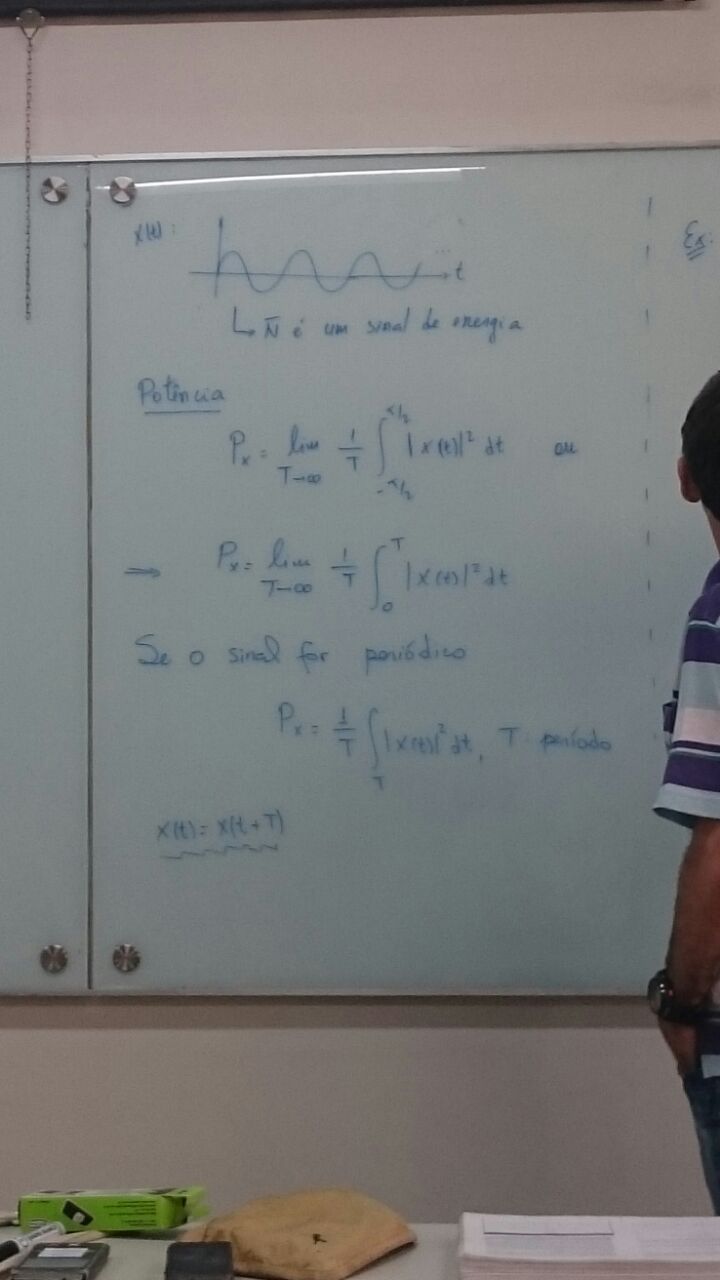 x(t):
... t
↳ Ñ é um sinal de energia
Potência
Pₓ = lim T→∞ 1/T ∫_{-T/2}^{T/2} |x(t)|² dt ou
⇒ Pₓ = lim T→∞ 1/T ∫_0^T |x(t)|² dt
Se o sinal for periódico
Pₓ = 1/T ∫_T |x(t)|² dt, T: período
x(t) = x(t + T)
Ex: